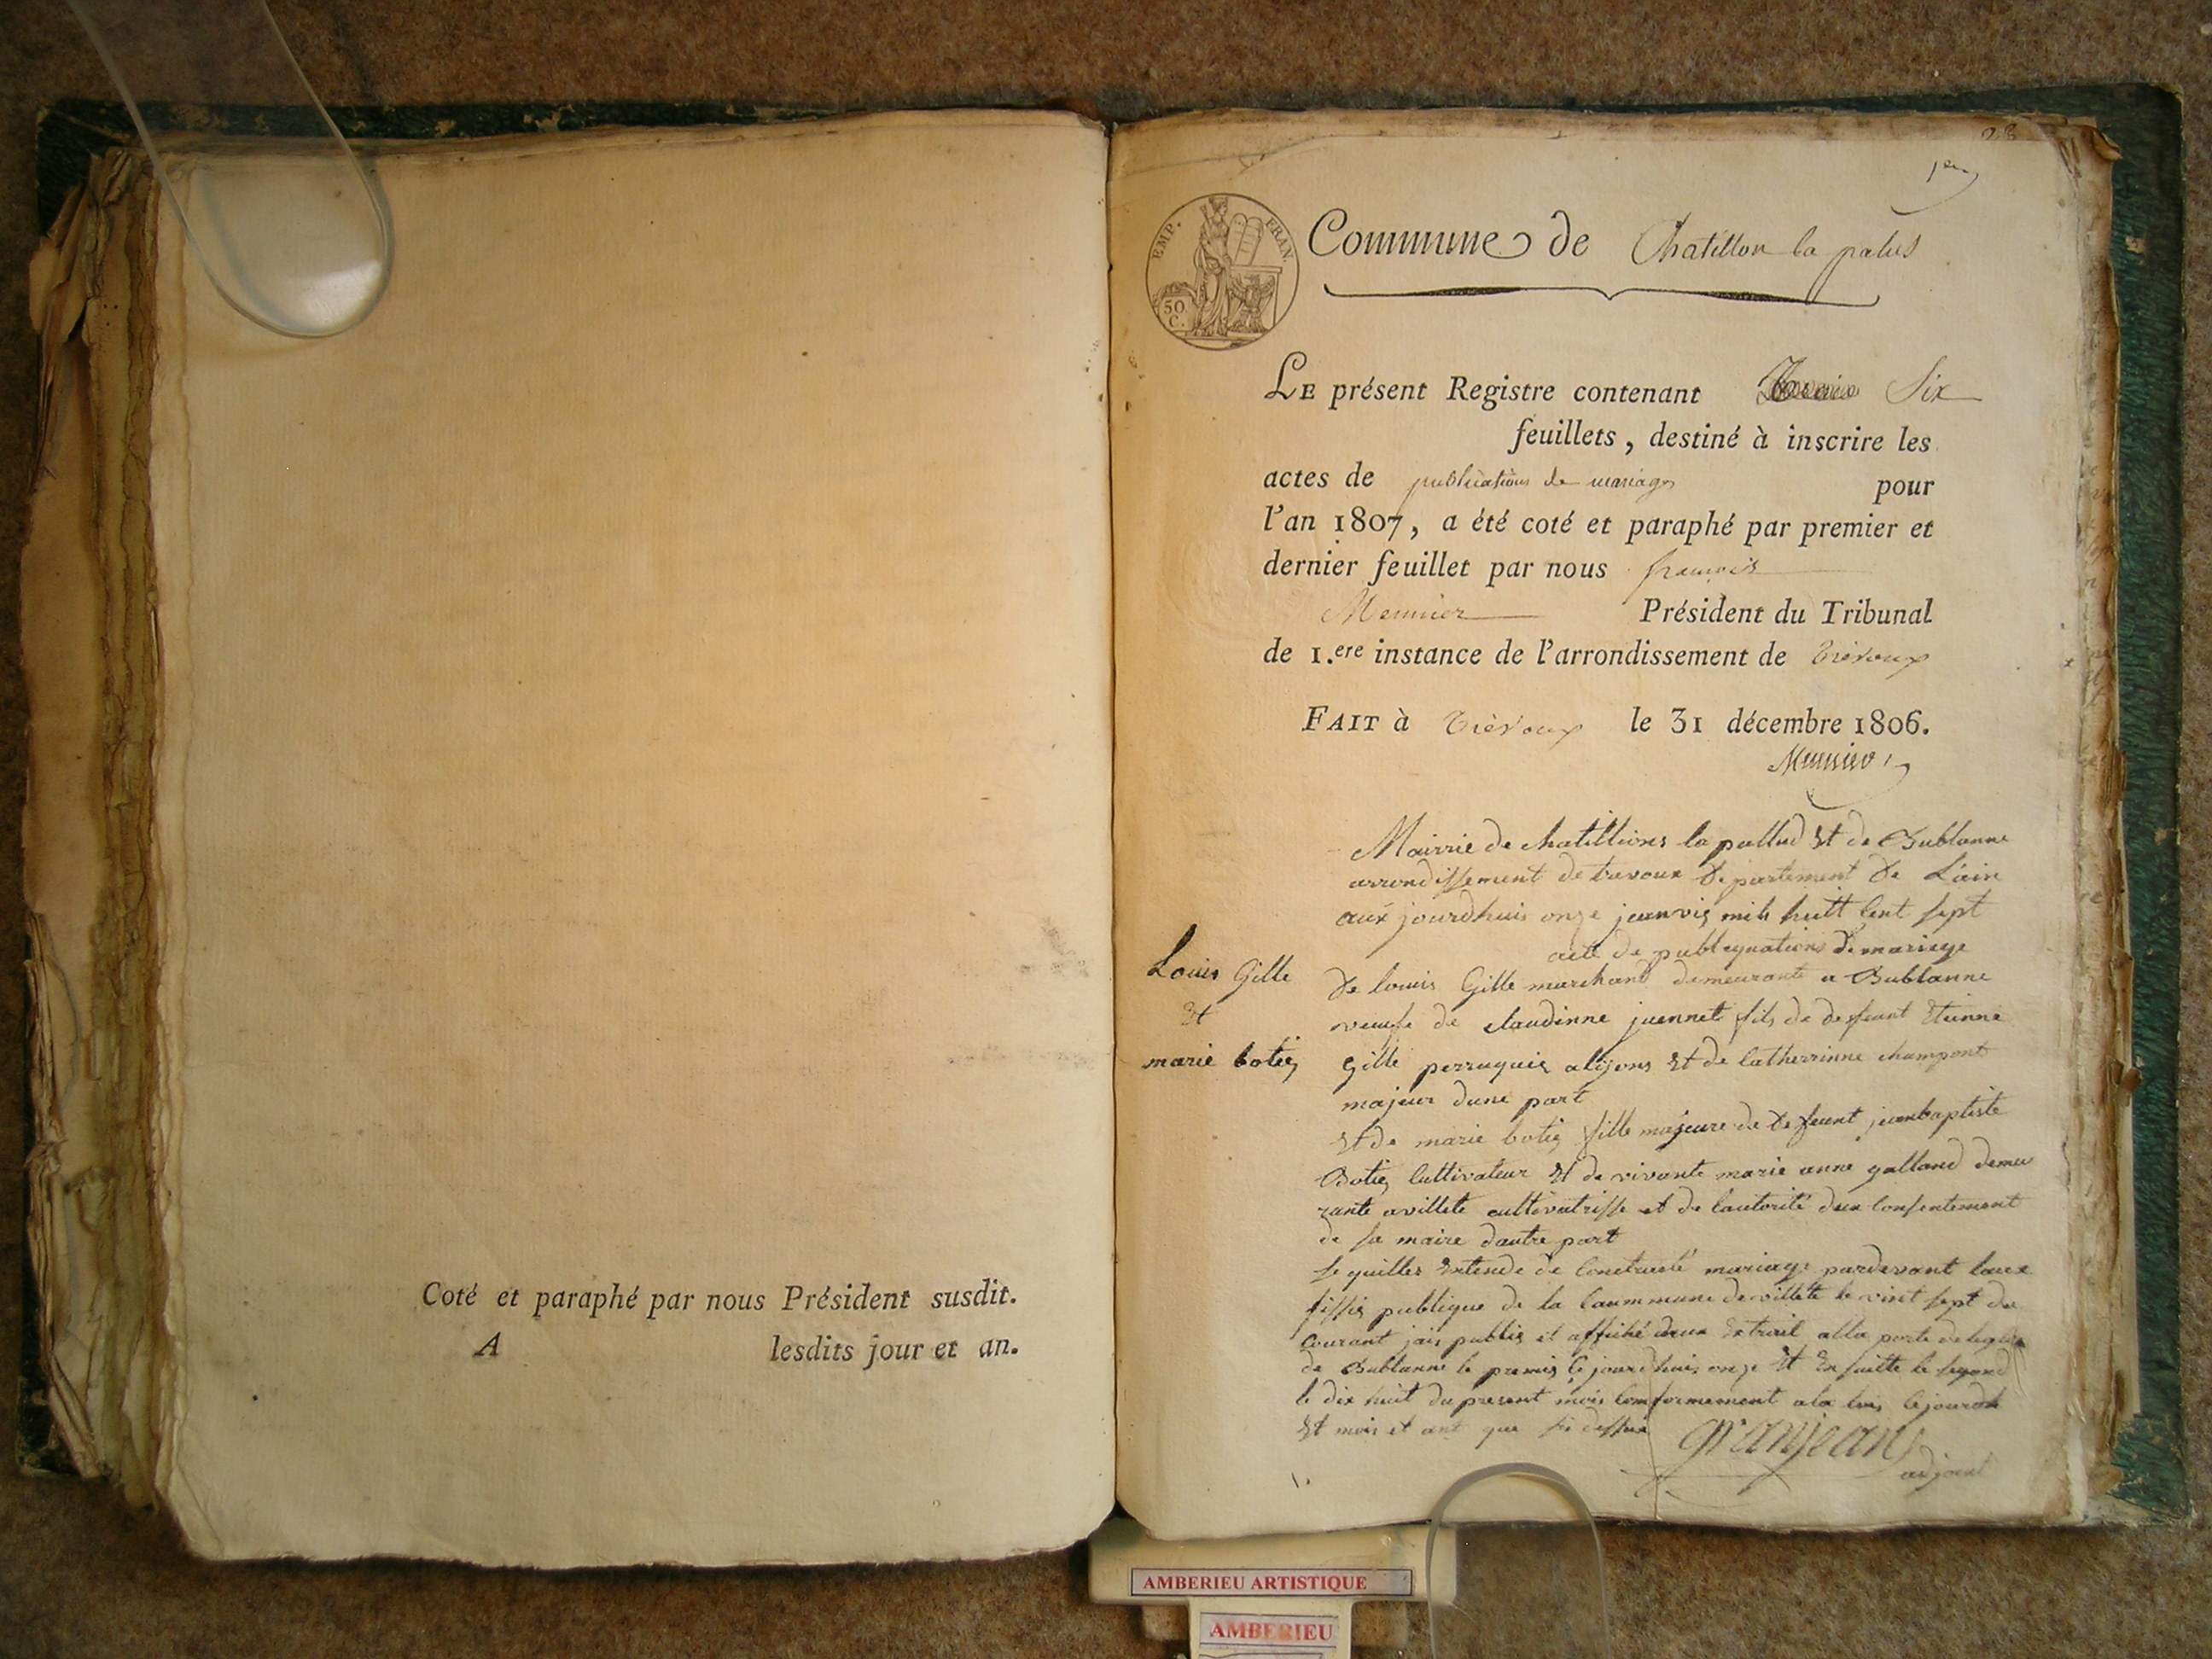 Coté et paraphé par nous Président susdit.
A lesdits jour et an.
28
1er
EMP. FRAN.
50 C.
Commune de Chatillon la palud
LE présent Registre contenant Six
feuillets, destiné à inscrire les
actes de publications de mariages pour
l'an 1807, a été coté et paraphé par premier et
dernier feuillet par nous françois
Meunier Président du Tribunal
de 1.ere instance de l'arrondissement de Trévoux
FAIT à Trévoux le 31 décembre 1806.
Meunier
Mairrie de chatillions la pallud Et de Bublanne
arrondissement de trevoux Departement De Lain
aux jourdhuis onze jeanvig mils huitt Cent sept
acte de publiquations de mariage
Louis Gille
Et
marie botig
De louis Gille marchand demeurante a Bublanne
veuufe de claudinne juennet fils de deffeunt Etienne
Gille perruquig a lijons Et de Catherrinne champont
majeur dune part
Et de marie botig fille majeure de deffeunt jeanbaptiste
Botig Cultivateur Et de vivante marie anne galland demeu
rante avillete cultivatrisse et de lautorité dun Consentement
de sa maire dautre part
lequilles Entende de Contracté mariage pardevant laux
fissig publique de la Caummune de villete le vint sept du
Courant jais publig et affiché deux Extrail alla porte de leglise
de Bublanne le premig Cejourdhuis onze Et En suitte le segond
le dix huit du present mois Comformement a la lois Cejourdh
Et mois et ant que si dessus
granjean
adjoint
AMBERIEU ARTISTIQUE
AMBERIEU